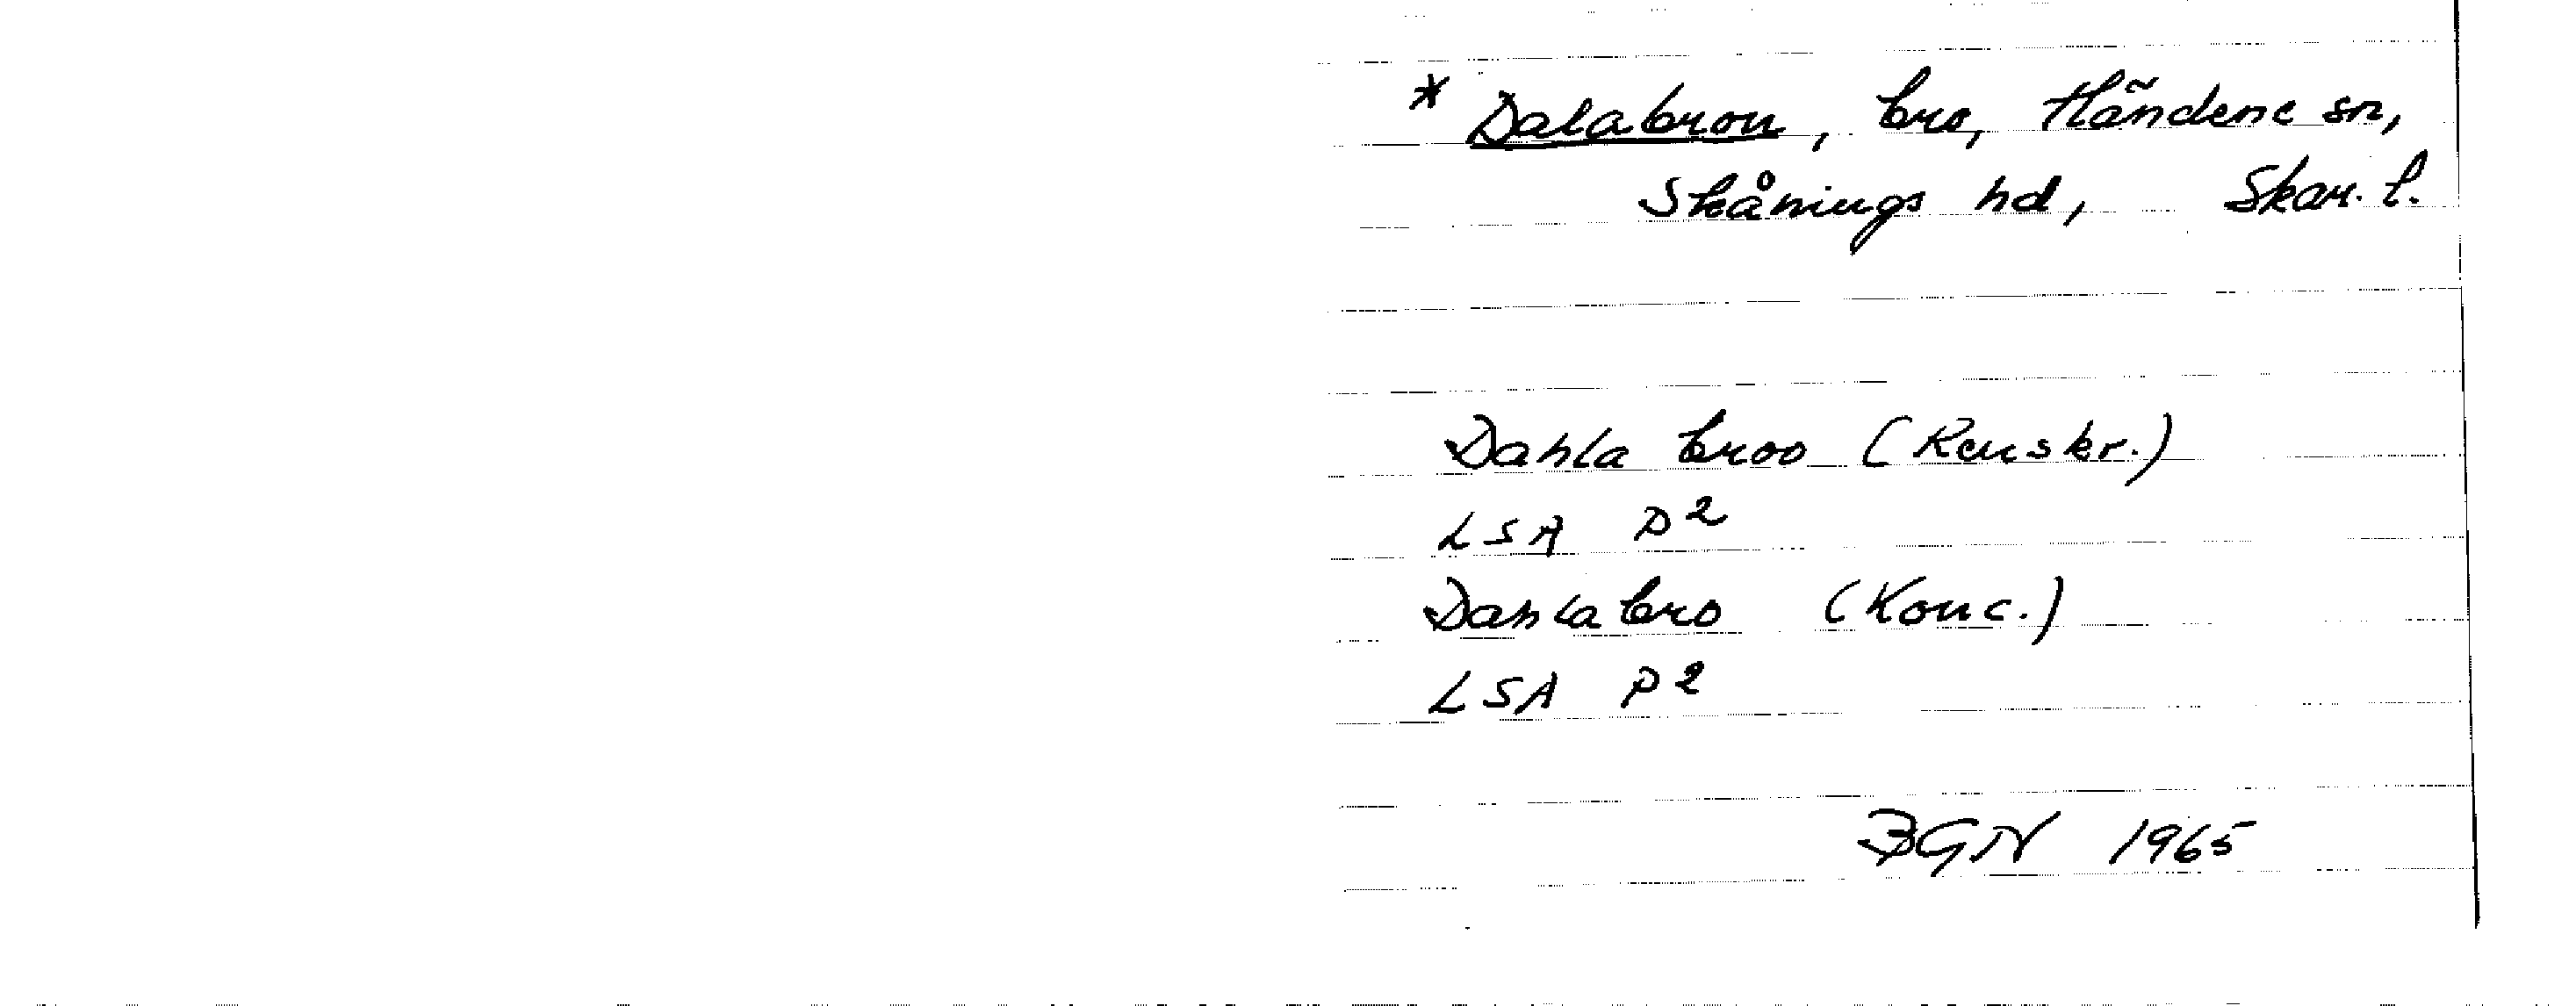 * Dalabron, bro, Händene sn,
Skånings hd, Skar. l.
Dahla broo (Renskr.)
LSA P²
Dahlabro (Konc.)
LSA P²
BGN 1965